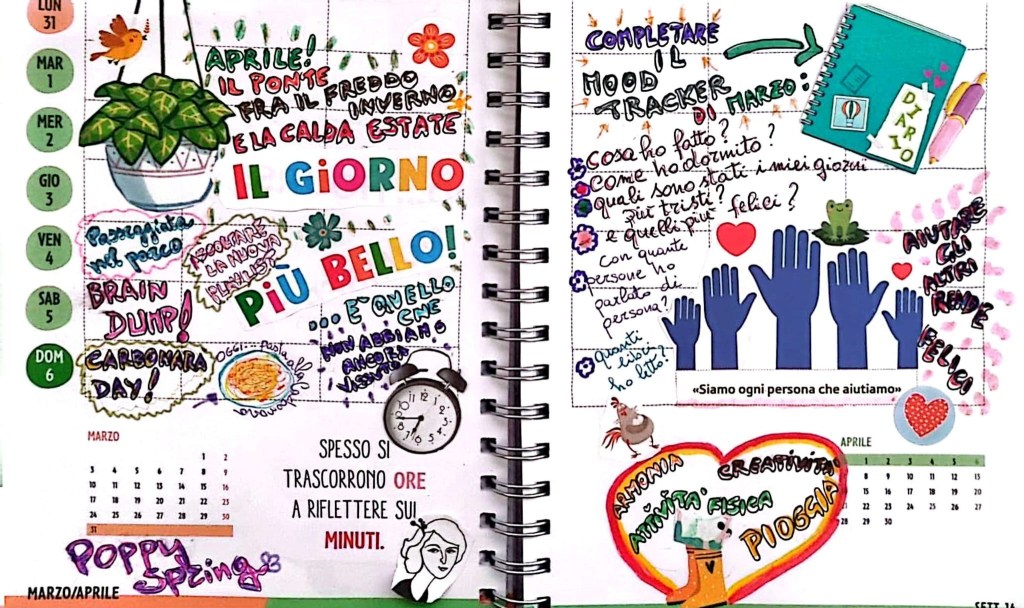 LUN
31
MAR
1
MER
2
GIO
3
VEN
4
SAB
5
DOM
6
APRILE!
IL PONTE
FRA IL FREDDO
INVERNO
E LA CALDA ESTATE
IL GiORNO
PiÙ BELLO!
... E' QUELLO
CHE
NON ABBIAMO
ANCORA
VISSUTO
Passeggiata
nel parco
ASCOLTARE
LA NUOVA
PLAYLIST
BRAIN
DUMP!
CARBONARA
DAY!
OGGI... pasta
MARZO
1 2
3 4 5 6 7 8 9
10 11 12 13 14 15 16
17 18 19 20 21 22 23
24 25 26 27 28 29 30
31
SPESSO SI
TRASCORRONO ORE
A RIFLETTERE SUI
MINUTI.
POPPY
Spring
MARZO/APRILE
COMPLETARE
IL
MOOD
TRACKER
DI MARZO:
DIARIO
cosa ho fatto?
come ho dormito?
quali sono stati i miei giorni
più tristi?
e quelli più felici?
con quante
persone ho
parlato di
persona?
quanti
libri
ho letto?
AIUTARE
GLI
ALTRI
RENDE
FELICI
«Siamo ogni persona che aiutiamo»
ARMONIA
CREATIVITA'
ATTIVITA' FISICA
PIOGGIA
APRILE
1 2 3 4 5 6
8 9 10 11 12 13
15 16 17 18 19 20
22 23 24 25 26 27
28 29 30
12
11
10
9
8
7
6
5
4
3
2
1